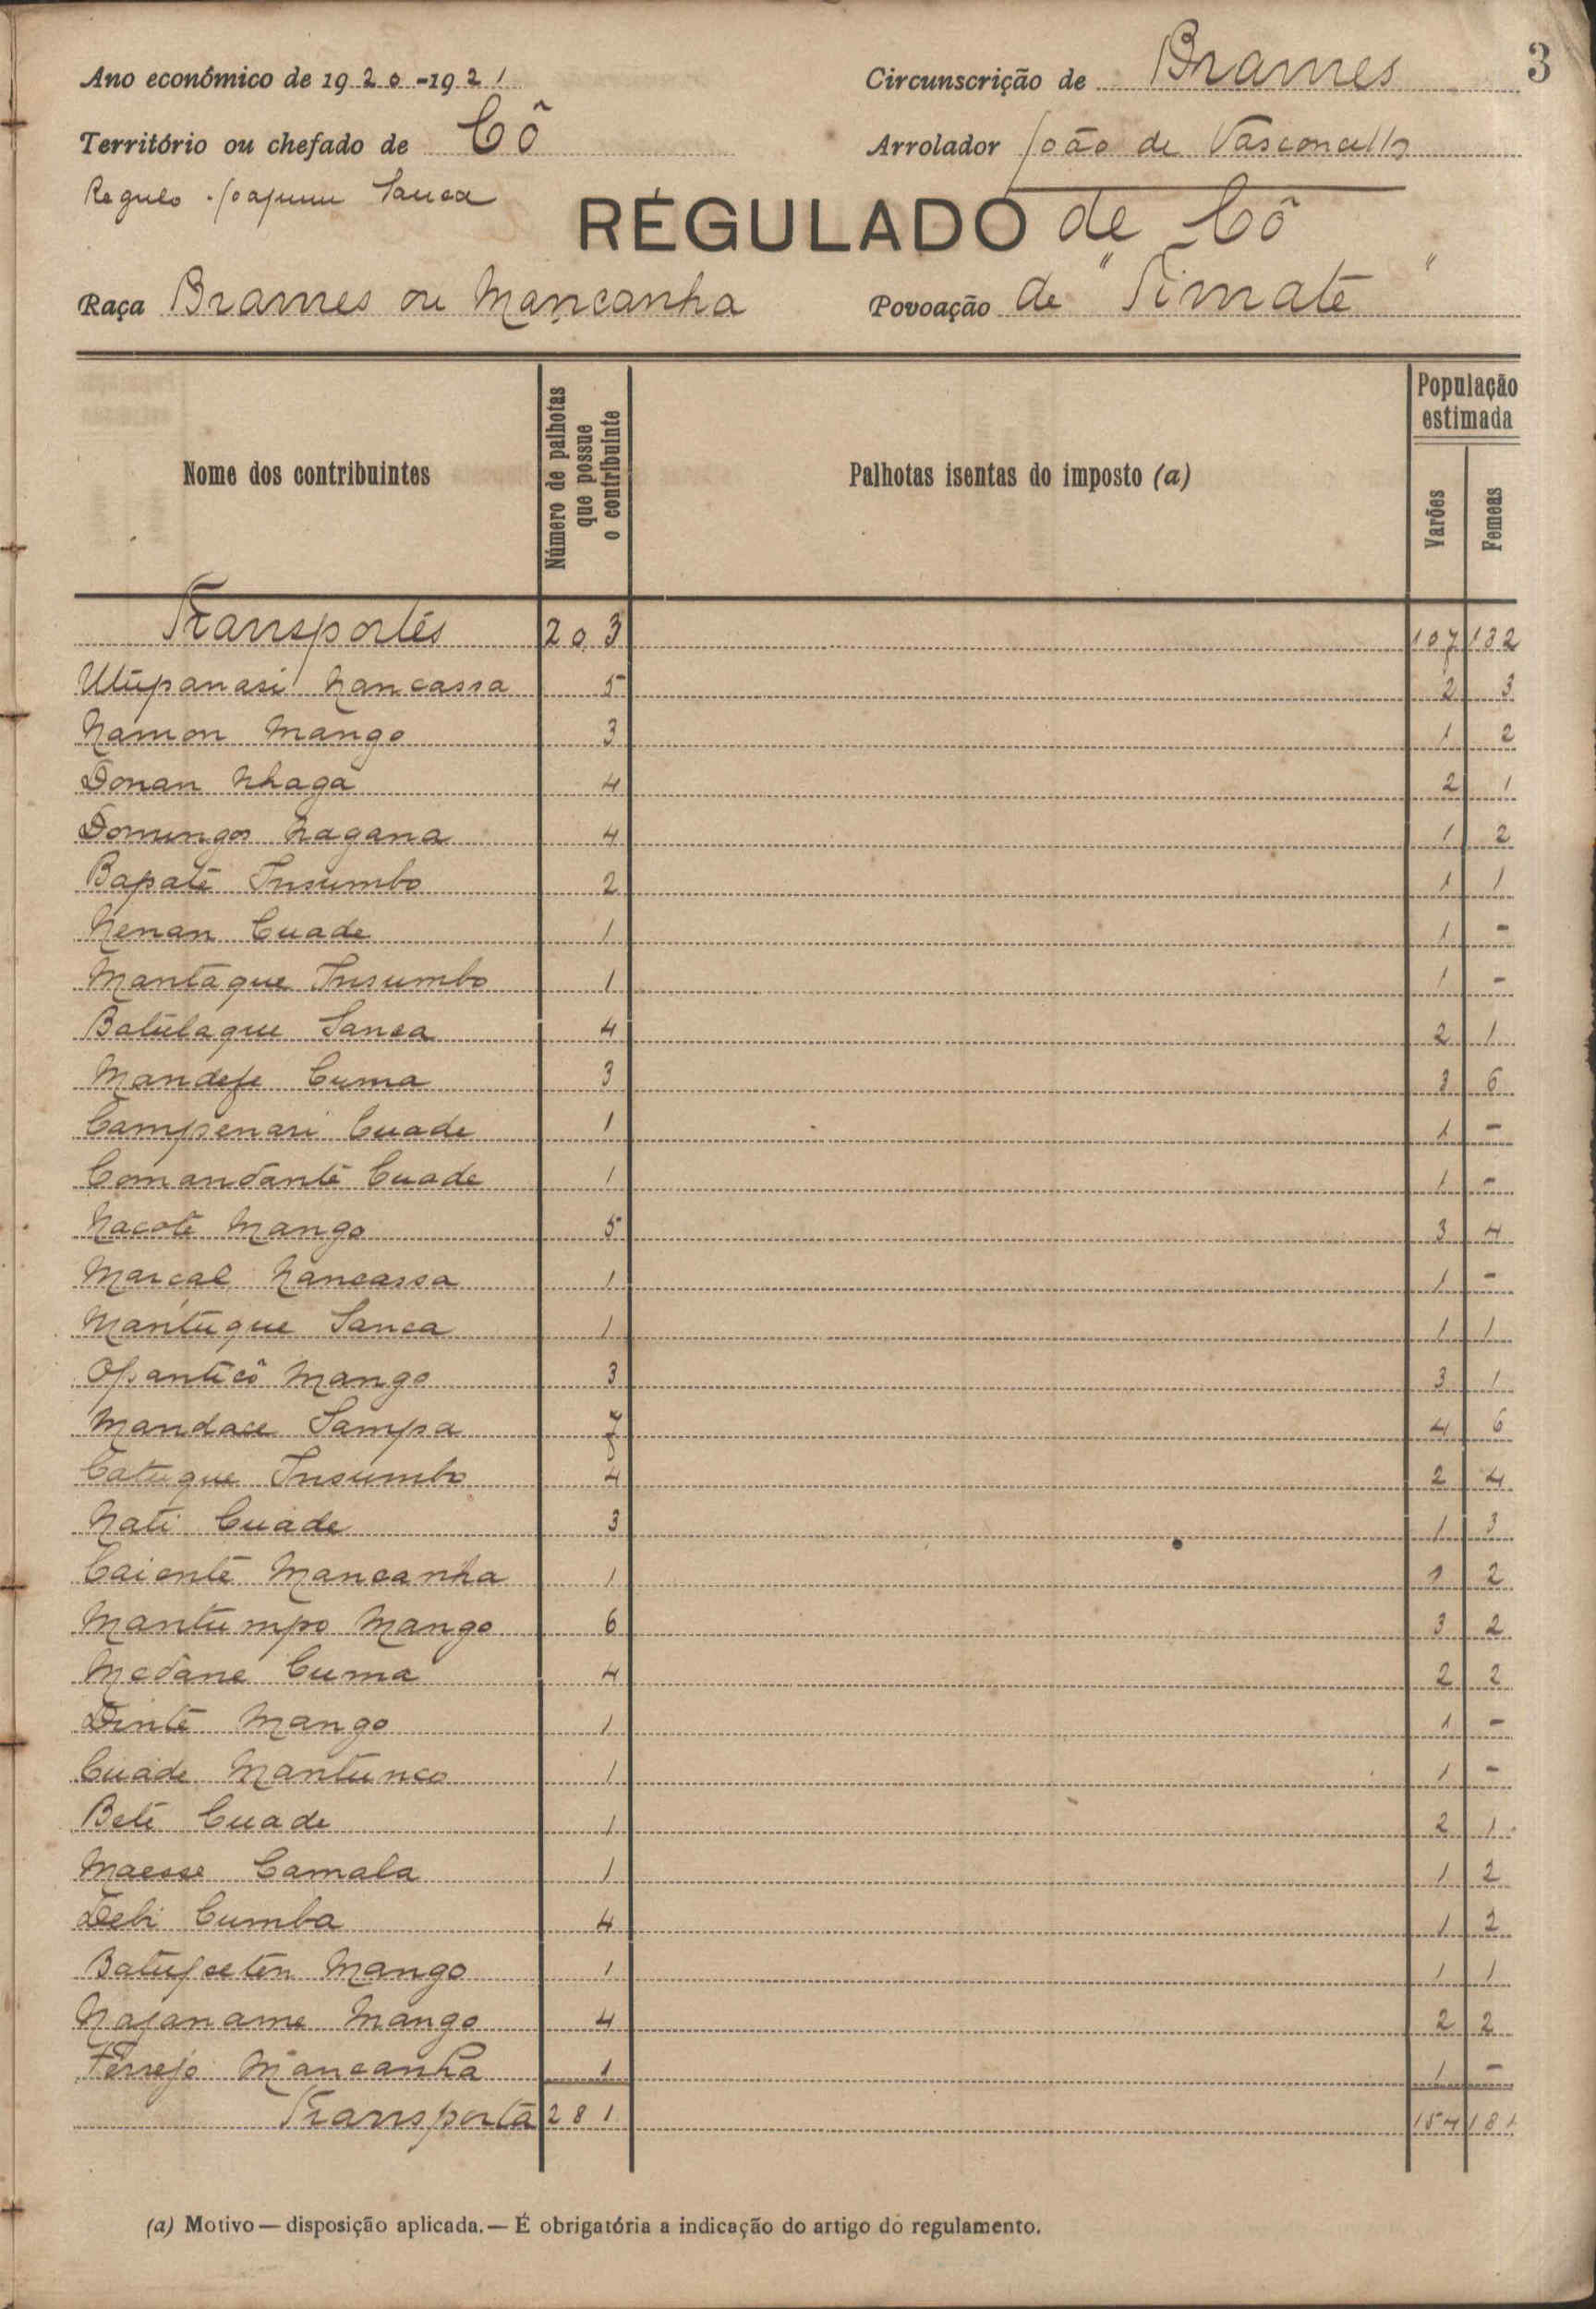 3
Ano económico de 1920-1921 Circunscrição de Brames
Território ou chefado de Cô Arrolador João de Vasconcellos
Regulo Joaquim Sanca
RÉGULADO de Cô
Raça Brames ou Mancanha Povoação de "Timate"
Nome dos contribuintes Número de palhotas que possue o contribuinte Palhotas isentas do imposto (a) População estimada Varões Femeas
Transportes 203 107 132
Utupanasi Nancassa 5 2 3
Namon Mango 3 1 2
Donan Nhaga 4 2 1
Domingos Nagana 4 1 2
Bapate Insumbo 2 1 1
Nenan Cuade 1 1 -
Mantaque Insumbo 1 1 -
Batulaque Sanca 4 2 1
Mandefe Cuma 3 3 6
Campenasi Cuade 1 1 -
Comandante Cuade 1 1 -
Nacote Mango 5 3 4
Marçal Nancassa 1 1 -
Mantuque Sanca 1 1 1
Opanticô Mango 3 3 1
Mandace Sampa 7 4 6
Catuque Insumbo 4 2 4
Nati Cuade 3 1 3
Caiente Mancanha 1 1 2
Mantumpo Mango 6 3 2
Medane Cuma 4 2 2
Dinte Mango 1 1 -
Cuade Mantunco 1 1 -
Bete Cuade 1 2 1
Maesse Camala 1 1 2
Debi Cumba 4 1 2
Mango 1 1 1
Najaname Mango 4 2 2
Ferrejo Mancanha 1 1 -
Transporta 281 154 181
(a) Motivo — disposição aplicada. — É obrigatória a indicação do artigo do regulamento.